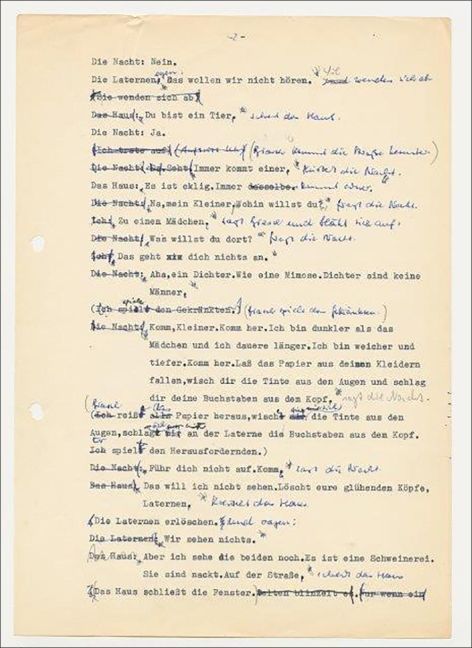 -2-
Die Nacht: Nein.
Die Laternen, sagen: Das wollen wir nicht hören. Und wenden sich ab
(Sie wenden sich ab)
Das Haus: Du bist ein Tier, schreit das Haus.
Die Nacht: Ja.
(Ich trete auf)
Die Nacht: Seht Immer kommt einer, die Nacht.
Das Haus: Es ist eklig. Immer dasselbe. kommt einer.
Die Nacht: Na, mein Kleiner, wohin willst du? fragt die Nacht.
Ich: Zu einem Mädchen, sagt und bläht sich auf.
Die Nacht: Was willst du dort? fragt die Nacht.
Ich: Das geht dich nichts an.
Die Nacht: Aha, ein Dichter. Wie eine Mimose. Dichter sind keine
Männer.
(Ich spiele den Gekränkten.) spielt den Gekränkten.)
Die Nacht: Komm, Kleiner. Komm her. Ich bin dunkler als das
Mädchen und ich dauere länger. Ich bin weicher und
tiefer. Komm her. Laß das Papier aus deinen Kleidern
fallen, wisch dir die Tinte aus den Augen und schlag
dir deine Buchstaben aus dem Kopf, sagt die Nacht.
(Ich reiße alle Papier heraus, wische die Tinte aus den
Augen, schlage mir an der Laterne die Buchstaben aus dem Kopf.
Ich spiele den Herausfordernden.)
Die Nacht: Führ dich nicht auf. Komm, sagt die Nacht
Das Haus: Das will ich nicht sehen. Löscht eure glühenden Köpfe,
Laternen, kreischt das Haus
(Die Laternen erlöschen. und sagen:
Die Laternen: Wir sehen nichts.
Das Haus: Aber ich sehe die beiden noch. Es ist eine Schweinerei.
Sie sind nackt. Auf der Straße, schreit das Haus
(Das Haus schließt die Fenster. Selten blinzelt es. Nur wenn ein